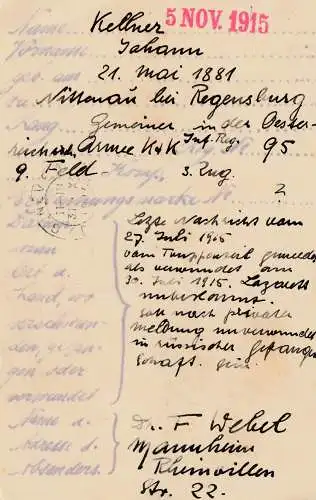 5 NOV. 1915
Name Kellner
Vorname Johann
geb. am 21. Mai 1881
zu Nittenau bei Regensburg
Rang Gemeiner in der Oester-
reichisch Armee K.u.K Inf. Reg. 95
9. Feld Komp. 3. Zug.
Erkennungsmarke Nr. ?
Letzte Nachricht vom
27. Juli 1915
vom Truppenteil gemeldet
als verwundet am
30. Juli 1915. Lazarett
unbekannt.
Soll nach privater
Meldung unverwundet
in russischer Gefangen
schaft sein
Ort u.
Land, wo
verschwun-
den, gefan-
gen oder
verwundet
Name u.
Adresse d.
Absenders.
Dr. F Webel
Mannheim
Rheinvillen
Str. 22.